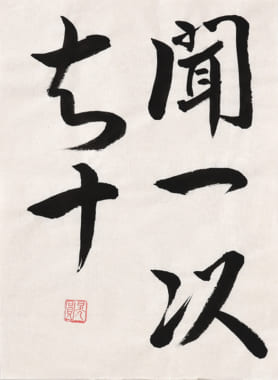 聞一以
知十